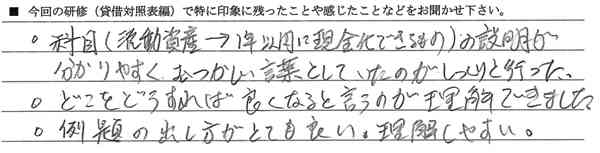 ■ 今回の研修（貸借対照表編）で特に印象に残ったことや感じたことなどをお聞かせ下さい。
○ 科目（流動資産→1年以内に現金化できるもの）の説明が
分かりやすく、むつかしい言葉としていたのがしっくりと行った。
○ どこをどうすれば良くなると言うのが理解できました
○ 例題の出し方がとても良い。理解しやすい。